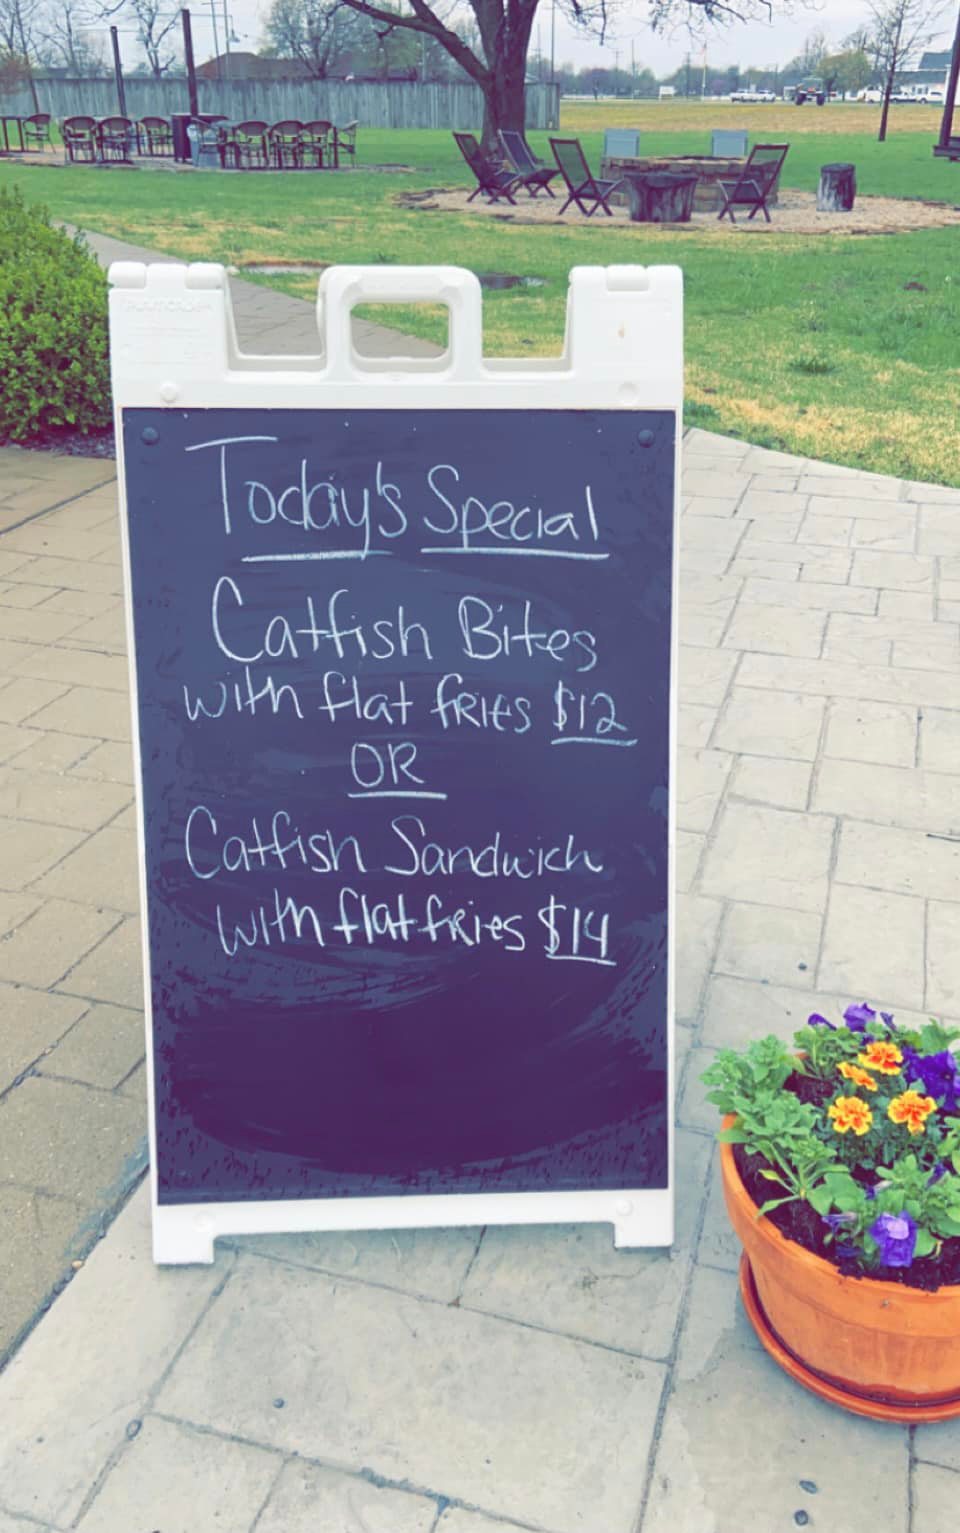 Today's Special
Catfish Bites
with flat fries $12
OR
Catfish Sandwich
with flat fries $14